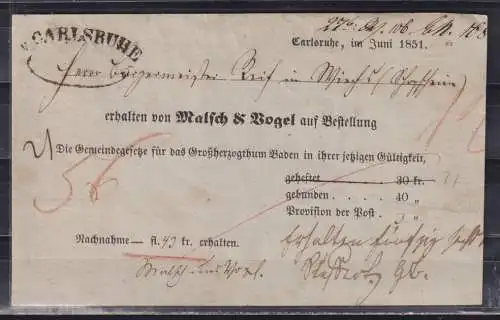 CARLSRUHE
Carlsruhe, im Juni 1851.
Herrn Bürgermeister Reif in Wiechs
erhalten von Malsch & Vogel auf Bestellung
Die Gemeindegesetze für das Großherzogthum Baden in ihrer jetzigen Gültigkeit,
geheftet 30 kr.
gebunden . . . . 40 „
Provision der Post . 3 „
Nachnahme — fl. 43 kr. erhalten.
Erhalten fünfzig sechs
Malsch und Vogel.
56